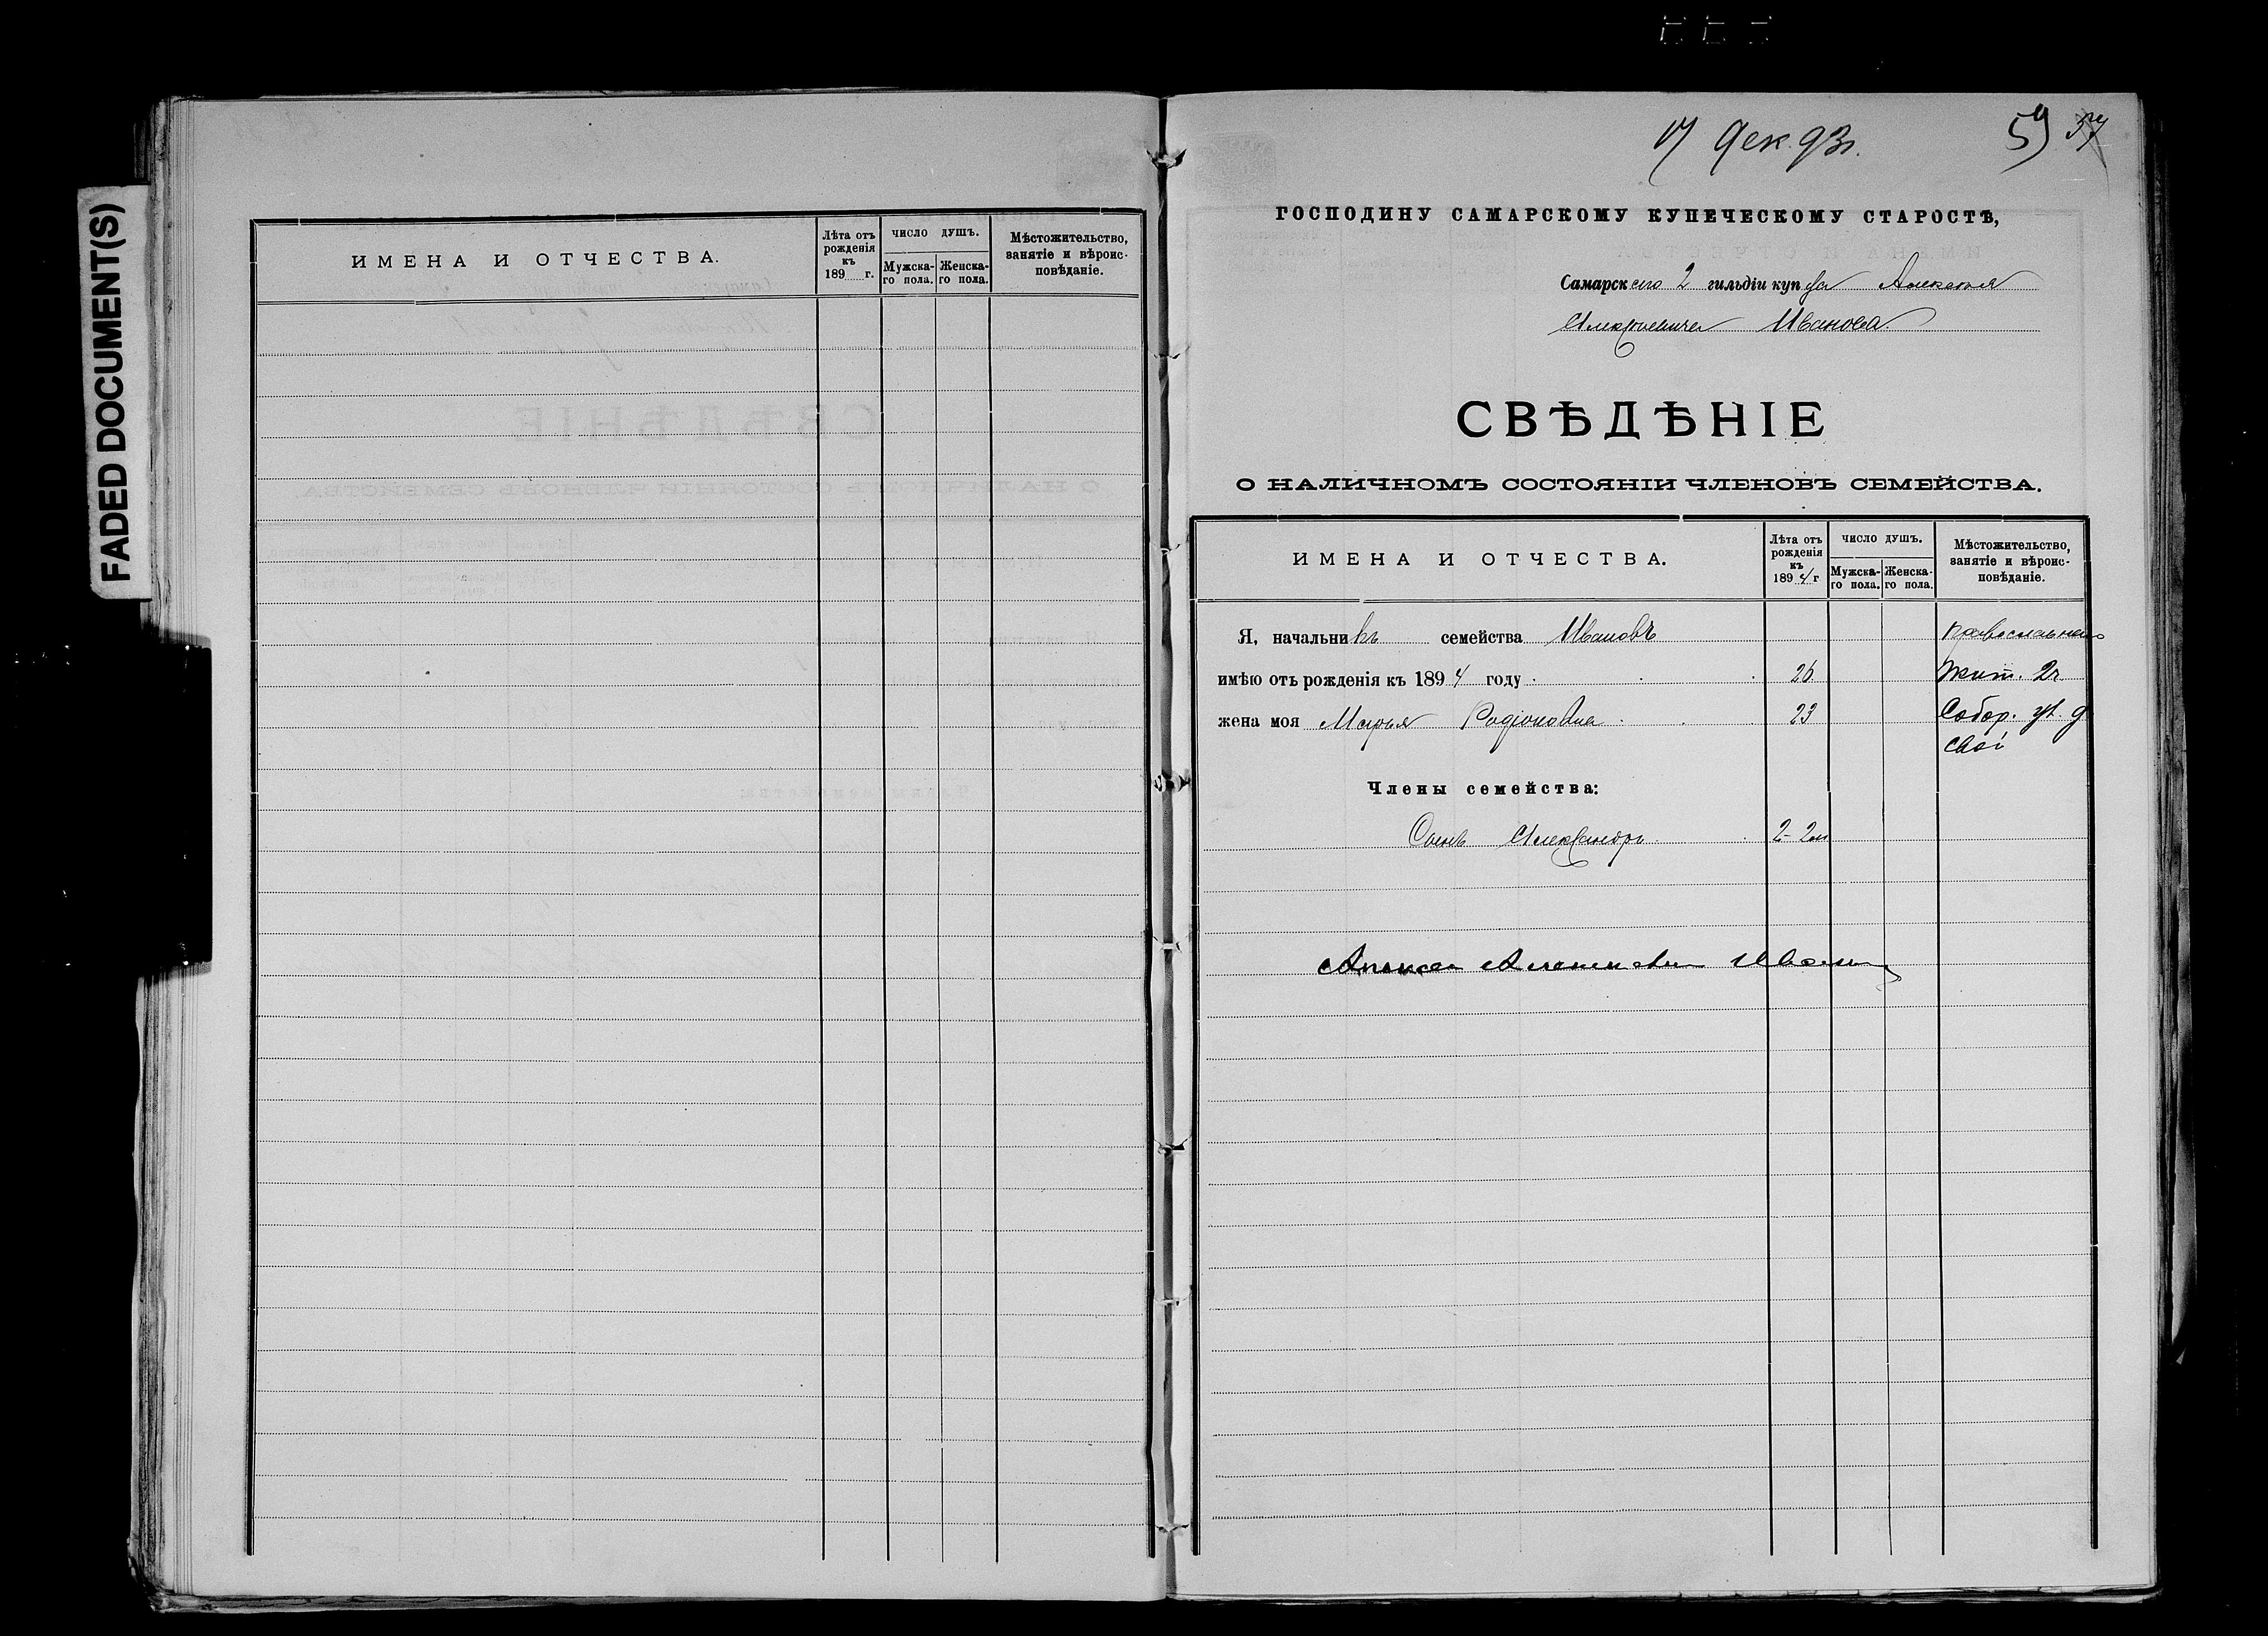 FADED DOCUMENT(S)
ИМЕНА И ОТЧЕСТВА.
Лѣта отъ рожденія къ 189 г.
ЧИСЛО ДУШЪ.
Мужска-го пола.
Женска-го пола.
Мѣстожительство, занятіе и вѣроис-повѣданіе.
17 Дек. 93 г.
59 57
ГОСПОДИНУ САМАРСКОМУ КУПЕЧЕСКОМУ СТАРОСТѢ,
Самарскаго 2 гильдіи купца Алексея
Иванова.
СВѢДѢНІЕ
О НАЛИЧНОМЪ СОСТОЯНІИ ЧЛЕНОВЪ СЕМЕЙСТВА.
ИМЕНА И ОТЧЕСТВА.
Лѣта отъ рожденія къ 1894 г
ЧИСЛО ДУШЪ.
Мужска-го пола.
Женска-го пола.
Мѣстожительство, занятіе и вѣроис-повѣданіе.
Я, начальникъ семейства Ивановъ
имѣю отъ рожденія къ 1894 году 26 Жит. 2 ч
жена моя Марья Родіоновна 23 Собор. ул. д
свой
Члены семейства:
Сынъ Александръ 2 2 м